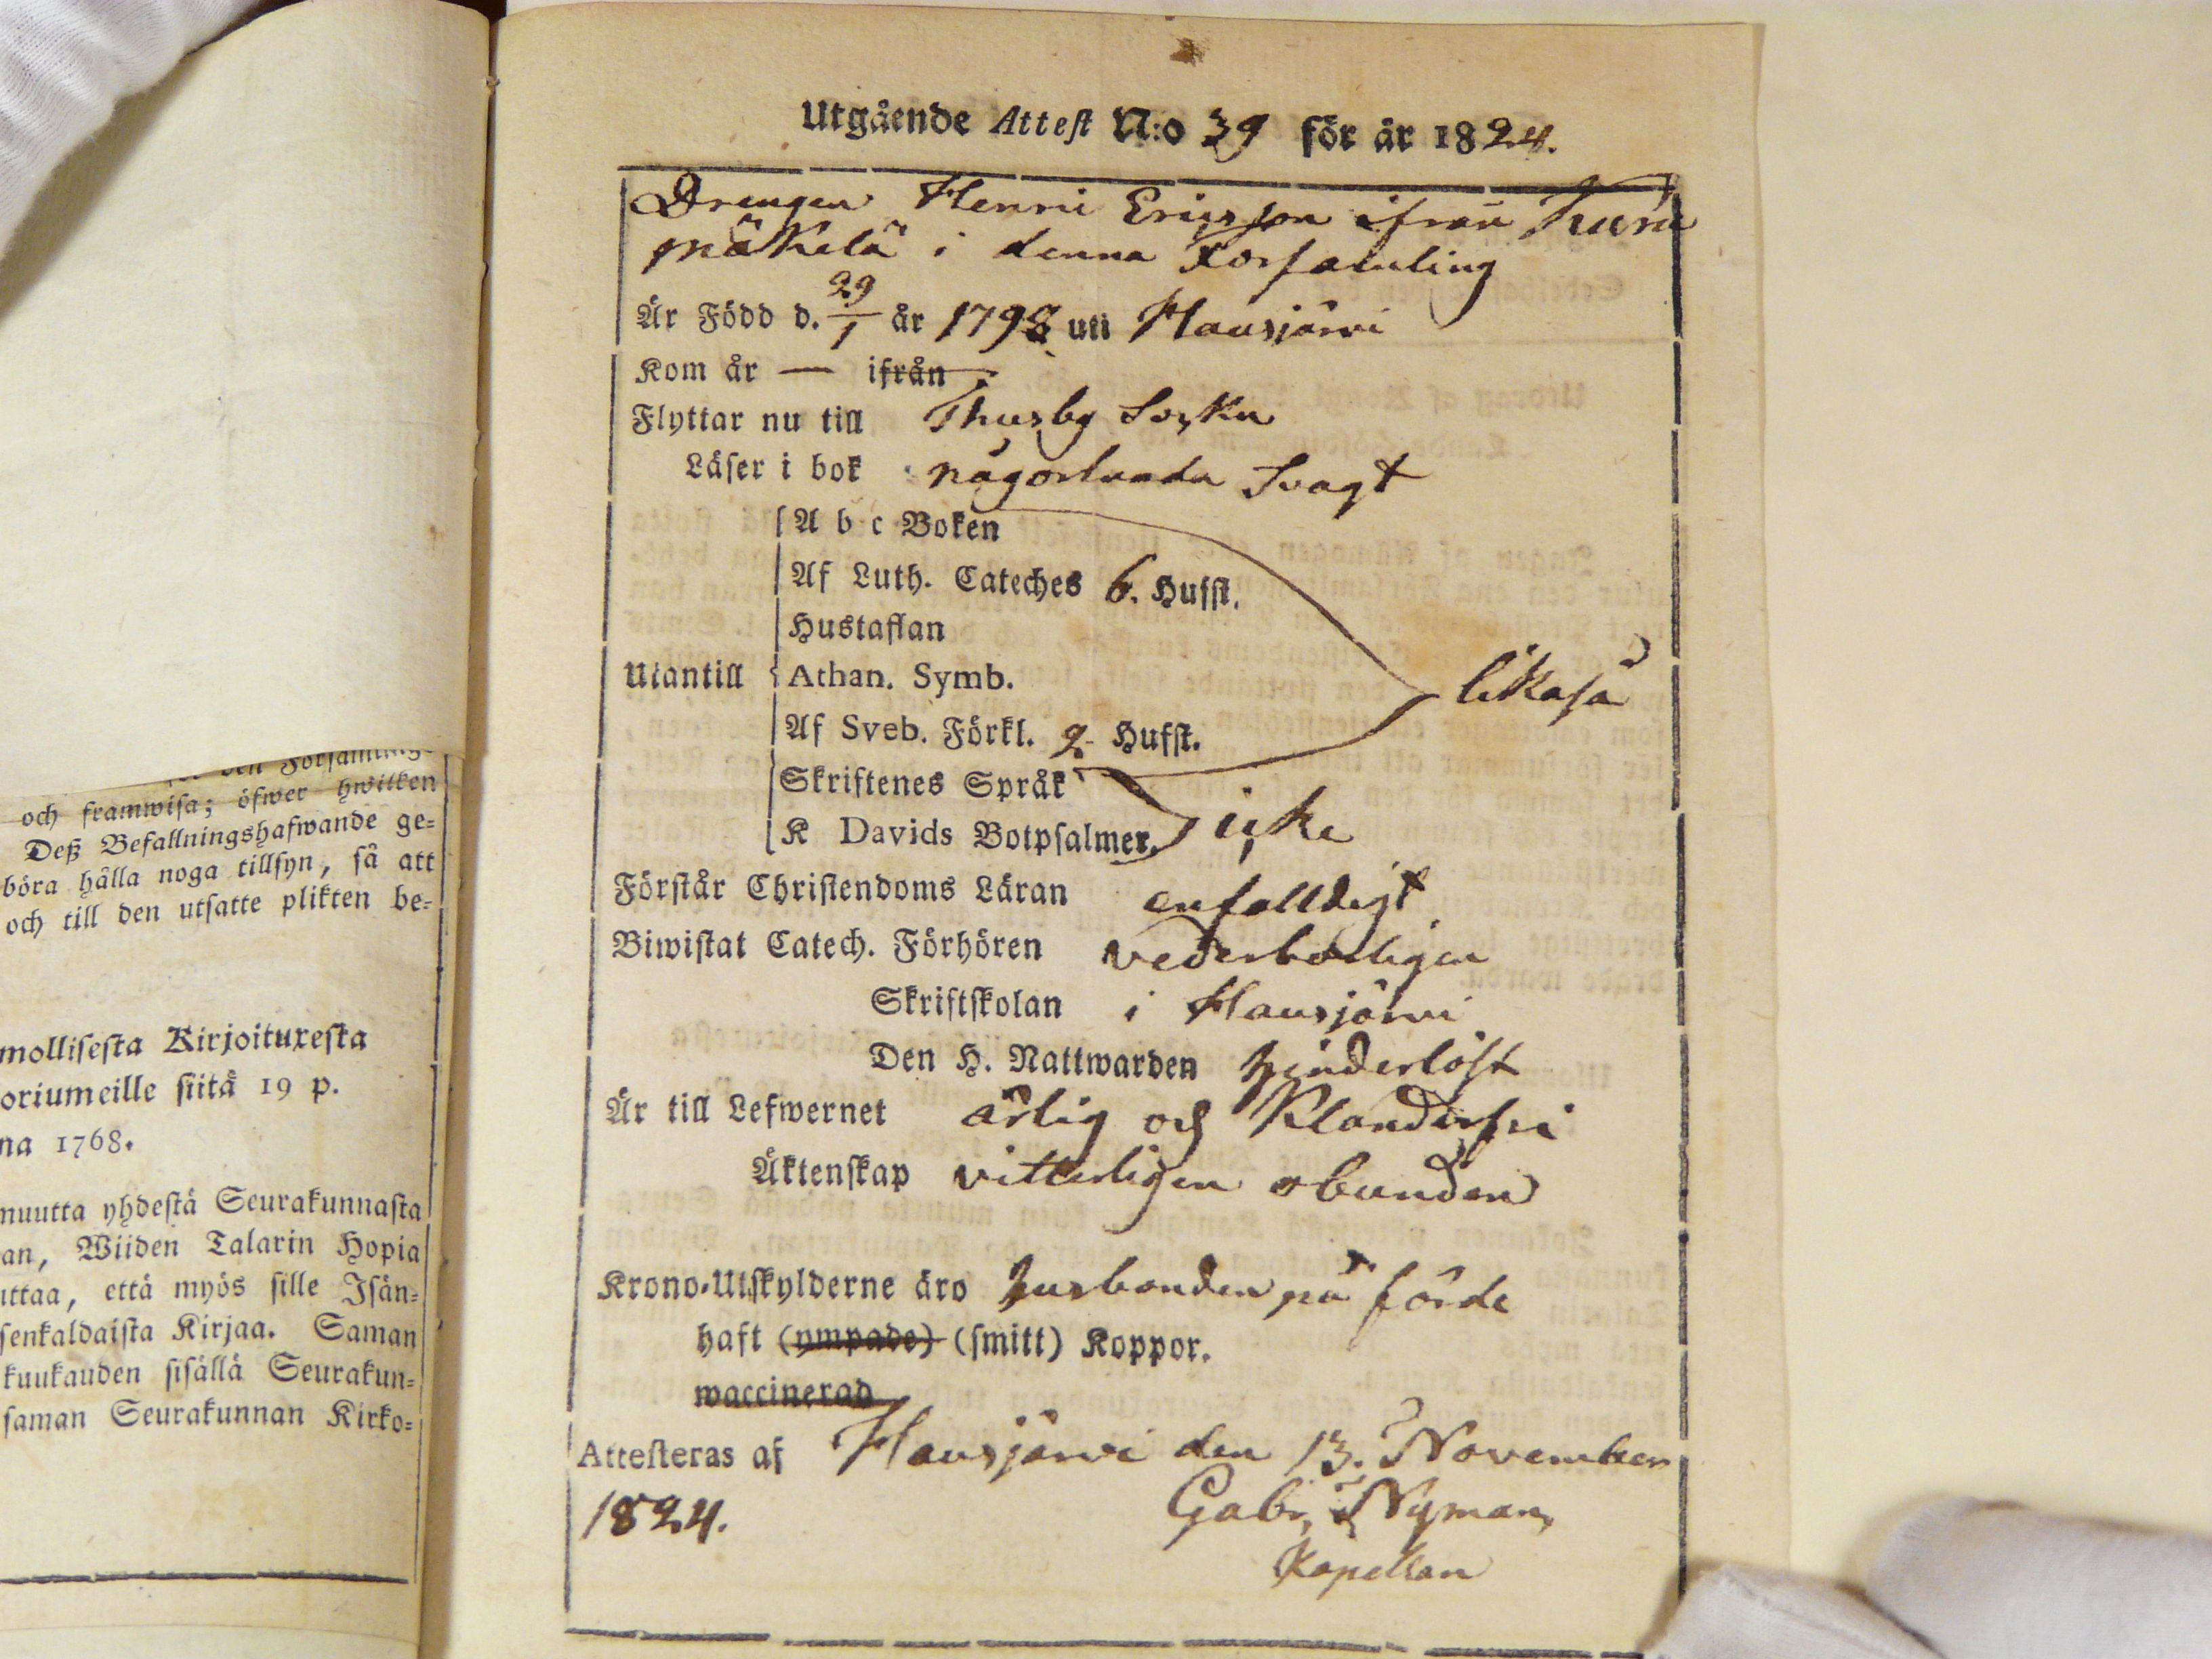 den Församlings-
och framwisa; öfwer hwilken
Deß Befallningshafwande ge=
böra hålla noga tillsyn, så att
och till den utsatte plikten be=
mollisesta Kirjoituxesta
oriumeille siitä 19 p.
na 1768.
muutta yhdestä Seurakunnasta
an, Wiiden Talarin Hopia
uttaa, että myös sille Isän=
senkaldaista Kirjaa. Saman
kuukauden sisällä Seurakun=
saman Seurakunnan Kirko=
Utgående Attest N:o 39 för år 1824.
Drengen Henric Ericsson ifrån
mäkelä i denna Församling
Är Född d. 29/1 år 1798 uti Hausjärvi
Kom år — ifrån
Flyttar nu till Thusby Sockn
Läser i bok någorlunda Svagt
A b c Boken
Af Luth. Cateches 6. Hufst.
Hustaflan
Utantill Athan. Symb. likaså
Af Sveb. Förkl. 2 Hufst.
Skriftenes Språk
K Davids Botpsalmer. icke
Förstår Christendoms Läran enfalldigt
Biwistat Catech. Förhören vederbörligen
Skriftskolan i Hausjärvi
Den H. Nattwarden hinderlöst
Är till Lefwernet ärlig och Klanderfri
Äktenskap vitterligen obunden
Krono-Utskylderne äro husbonden på förde
haft (ympade) (smitt) Koppor.
waccinerad
Attesteras af Hausjärvi den 13. November
1824. Gabr. Nyman,
Kapellan